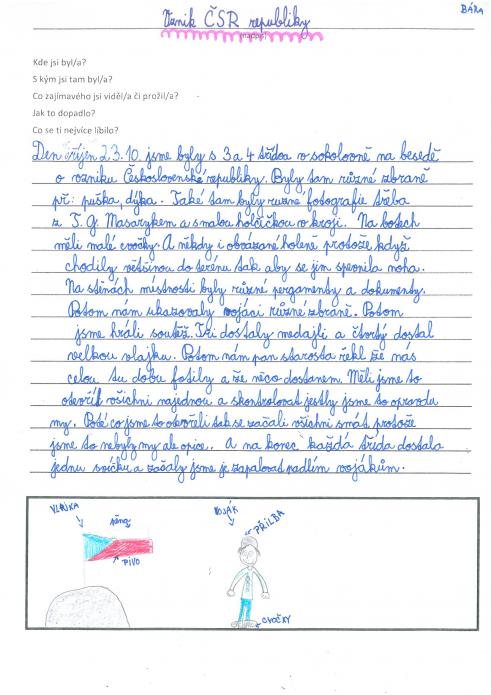 BÁRA
Vznik ČSR republiky
(nadpis)
Kde jsi byl/a?
S kým jsi tam byl/a?
Co zajímavého jsi viděl/a či prožil/a?
Jak to dopadlo?
Co se ti nejvíce líbilo?
Den říjen 23.10. jsme byly s 3 a 4 třídou v sokolovně na besedě
o vzniku Československé republiky. Byly tam různé zbraně
př: puška, dýka. Také tam byly ruzne fotografie třeba
z T. G. Masarykem a s malou holčičkou v kroji. Na botech
měli malé cvočky. A někdy i obvázané holene protože když
chodily většinou do terénu tak aby se jim zpevnila noha.
Na stěnách místnosti byly různé pergamenty a dokumenty.
Potom nám ukazovaly vojáci různé zbraně. Potom
jsme hráli soutěž. Tři dostaly medajli a čtvrtý dostal
velkou vlajku. Potom nám pan starosta řekl že nas
celou tu dobu fotily a že něco dostanem. Měli jsme to
otevřít všichni najednou a skontrolovat jestly jsme to opravdu
my. Poté co jsme to otevřeli tak se začali všichni smát protože
jsme to nebyly my ale opice. A na konec každá třída dostala
jednu svíčku a začaly jsme je zapalovat padlím vojákům.
VLAJKA
pěna
PIVO
VOJÁK
PŘILBA
CVOČKY